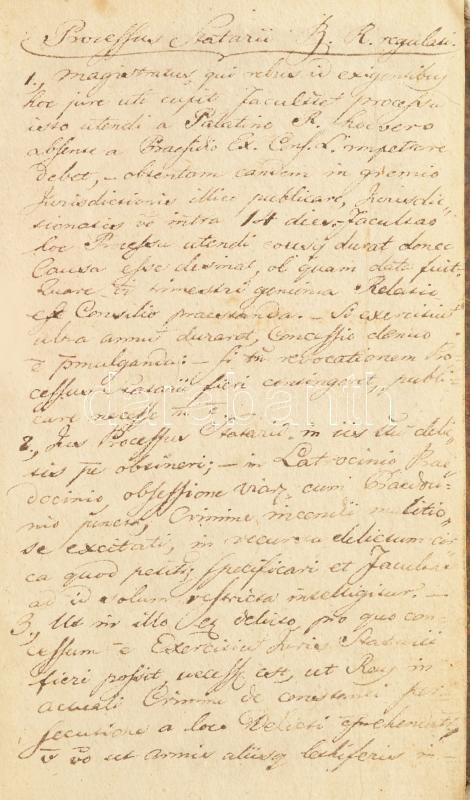 Processus Statarii B. R. regulati.
1., Magistratus, qui rebus id exigentibus
hoc jure uti cupit Facultatem processu
isto utendi a Palatino R. hoc vero
absente a Praesidio Ex. Cons. L. impetrare
debet, – obtentam eandem in gremio
Jurisdictionis illico publicare, Jurisdic-
tionatis vo intra 14 dies. Facultas
hoc Processu utendi eousq durat donec
Causa esse desinat, ob quam data fuit.
Quare trimestri genuina Relatio
est Consilio praestanda. – Si exercitium
ultra annum duraret, Concessio denuo
e pmulganda: – si revocationem Pro-
cessus Statarii fieri contingeret, publi-
care necesse
2., Jus Processus Statarii in iis delic-
tis obtineri; – in Latrocinio
docinio obsessione viar. cum Praedoni-
nio juncta, Crimine incendii malitio-
se excitati, in recursu delictum cir-
ca quod petitq specificari et Facultas
ad id solum restricta intelligitur. –
3., Ut in illo delicto, pro quo con-
cessum e Exercitium Juris Statarii
fieri possit, necesse est, ut Reus in
actuali Crimine de constanti per-
secutione a loco Delicti
vo ut armis aliisq lethiferis in-
darabanth